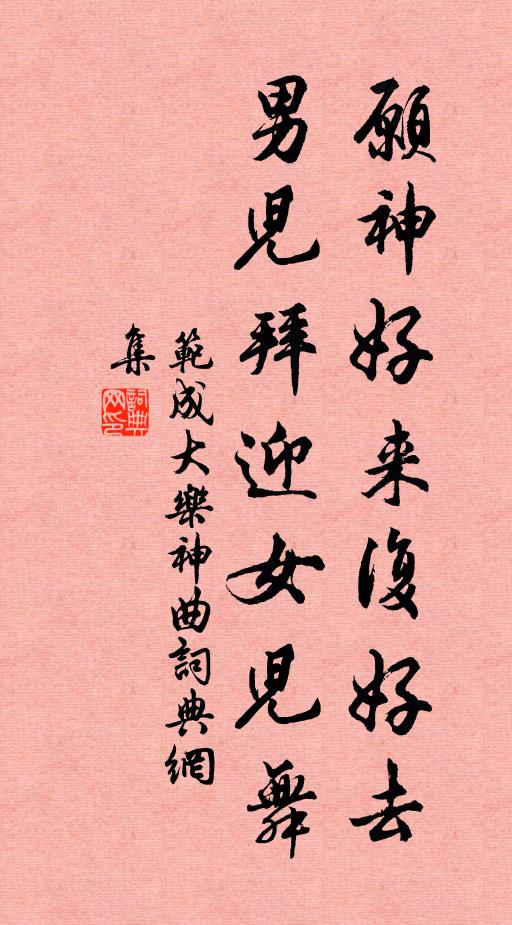 願神好来復好去
男児拜迎女児舞
範成大樂神曲詞典網
集
詞典
网印